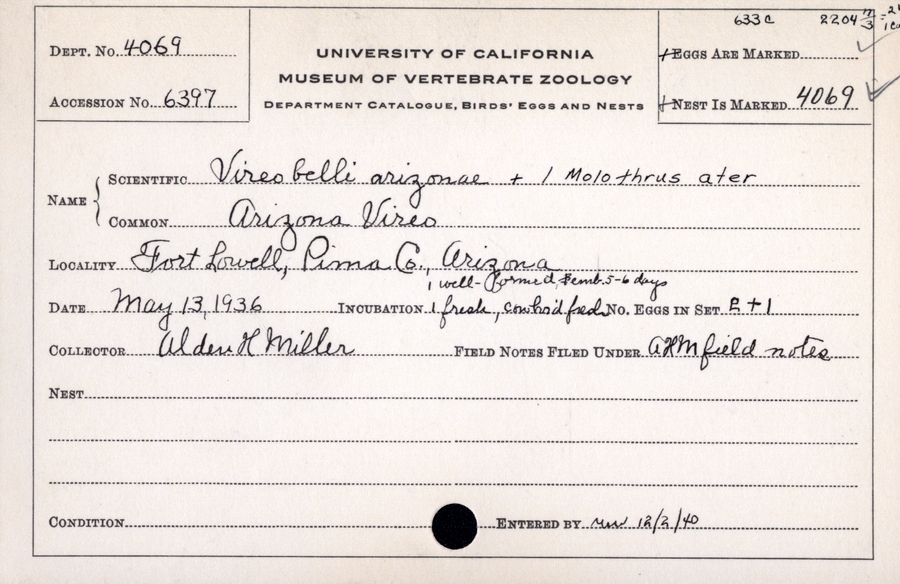 633c 2204
Dept. No. 4069
UNIVERSITY OF CALIFORNIA
MUSEUM OF VERTEBRATE ZOOLOGY
Department Catalogue, Birds' Eggs and Nests
Eggs Are Marked
Accession No. 6397
Nest Is Marked 4069
Name
Scientific Vireo belli arizonae + 1 Molothrus ater
Common Arizona Vireo
Locality Fort Lowell, Pima Co., Arizona
1 well-formed, emb. 5-6 days
Date May 13, 1936 Incubation 1 fresh, cowbird fresh No. Eggs in Set 2+1
Collector Alden H Miller Field Notes Filed Under AHM field notes
Nest
Condition Entered by 12/2/40